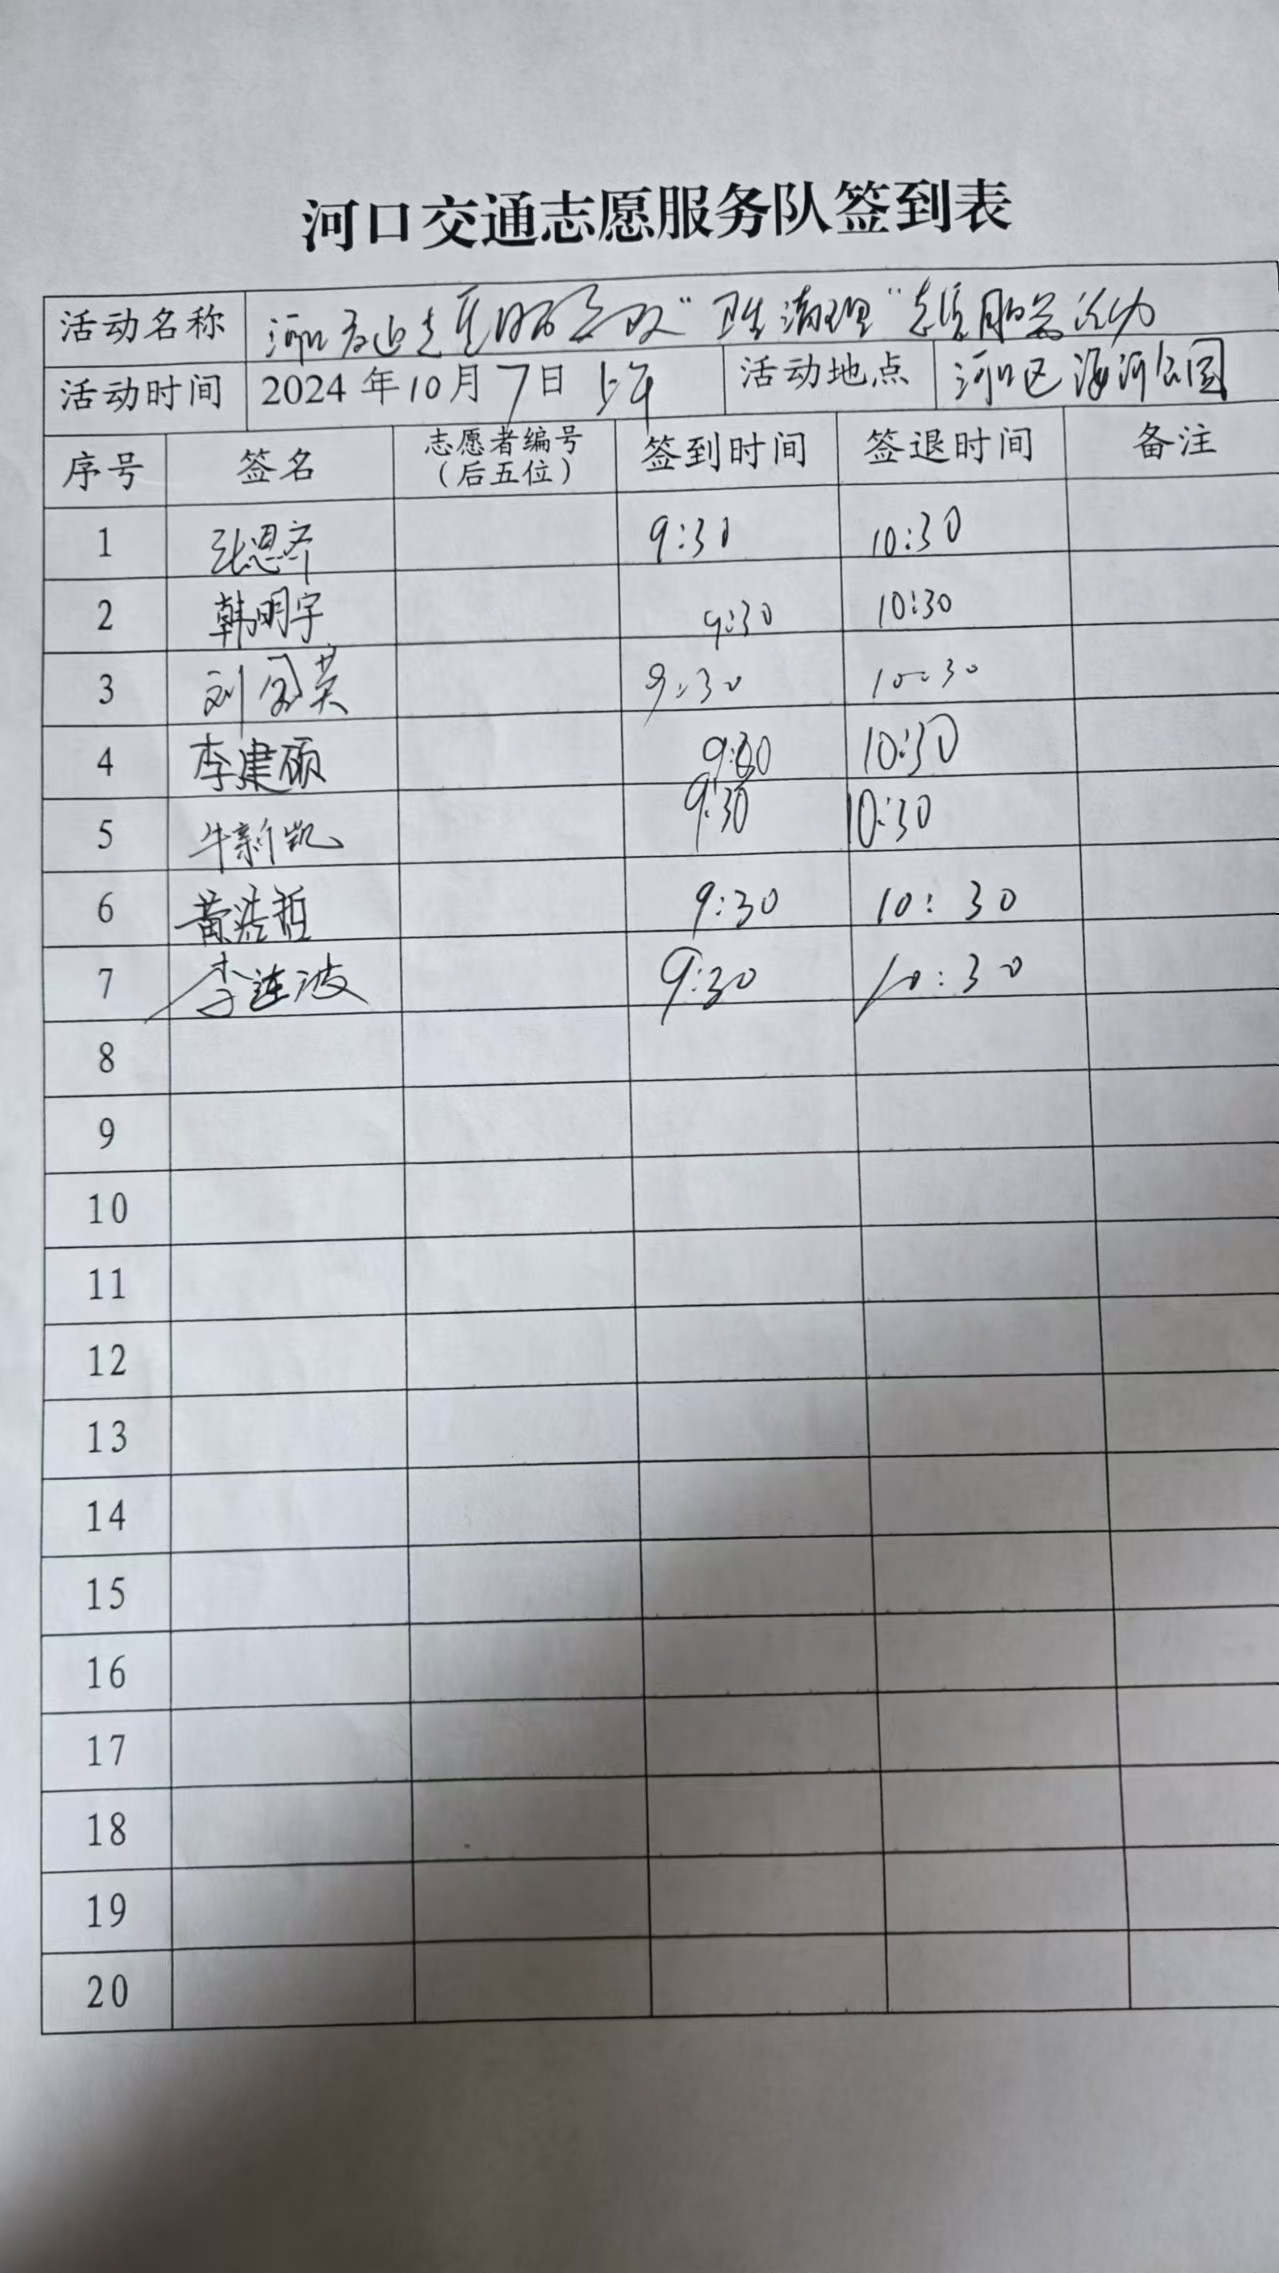 河口交通志愿服务队签到表
活动名称 河口交通志愿服务队“卫生清理”志愿服务活动
活动时间 2024年10月7日 上午 活动地点 河口区海河公园
序号 签名 志愿者编号（后五位） 签到时间 签退时间 备注
1 张恩齐 9:30 10:30
2 韩明宇 9:30 10:30
3 刘英 9:30 10:30
4 李建硕 9:30 10:30
5 牛新凯 9:30 10:30
6 黄浩哲 9:30 10:30
7 李连波 9:30 10:30
8
9
10
11
12
13
14
15
16
17
18
19
20